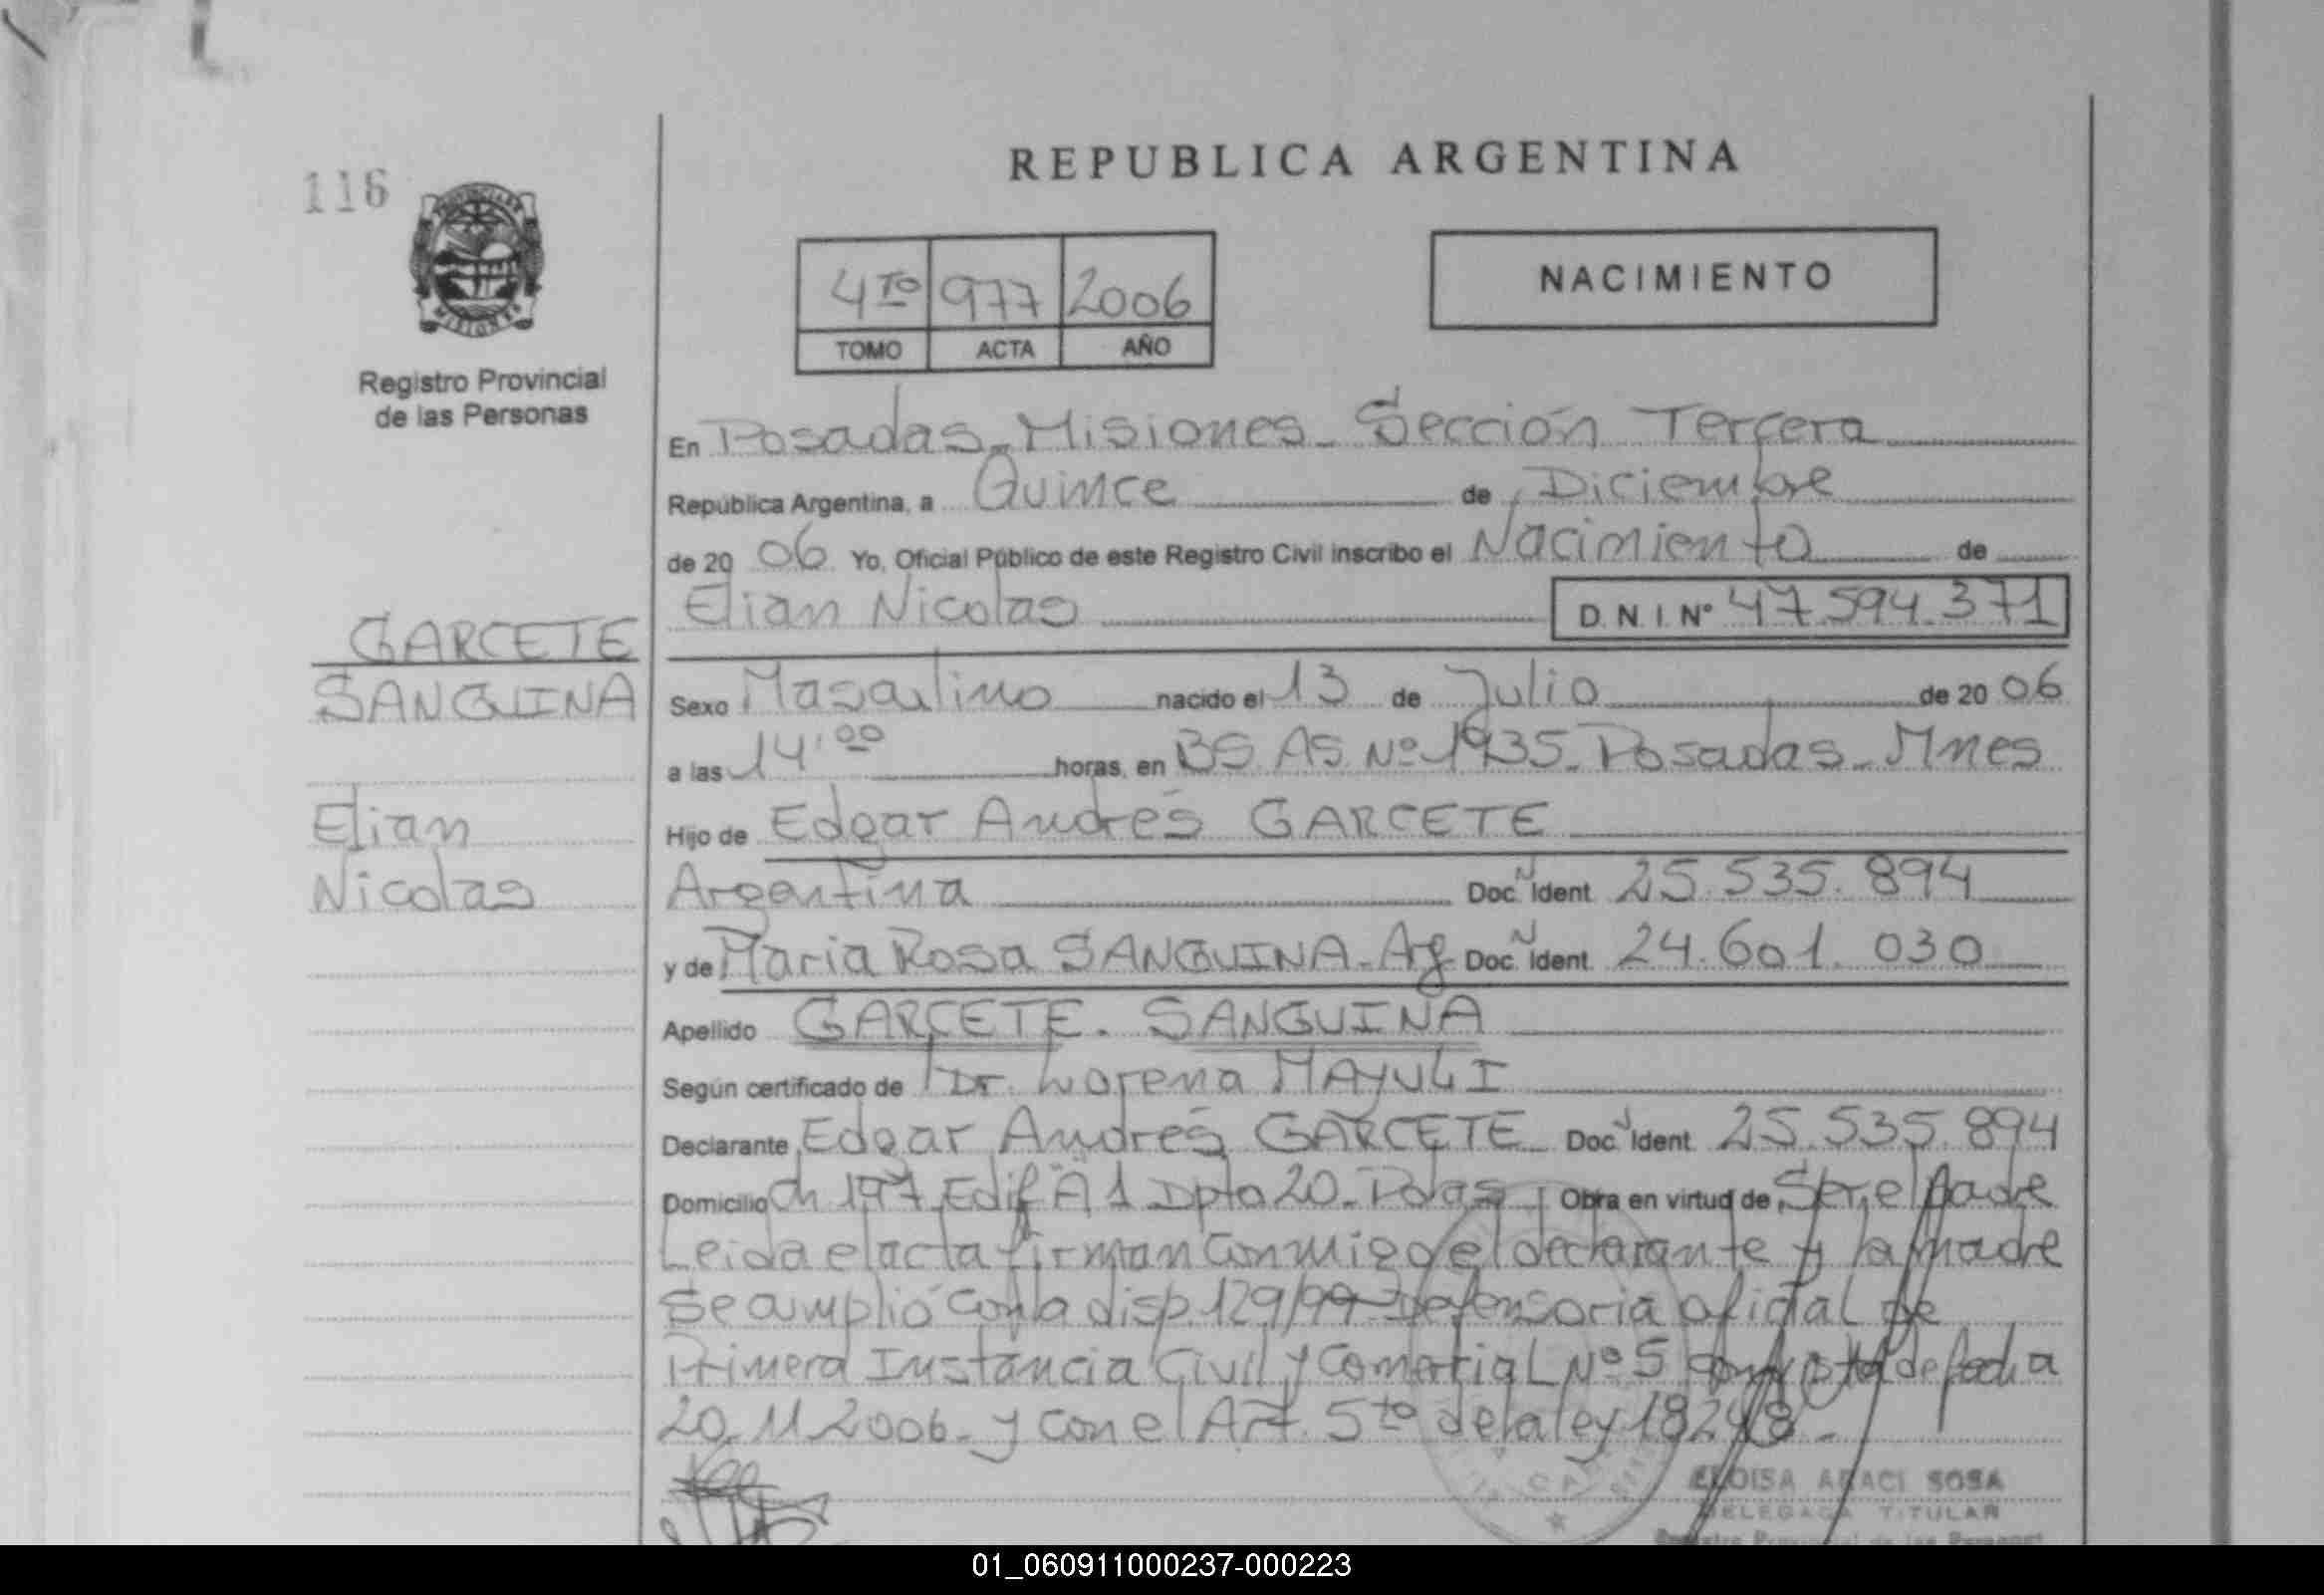 116
REPUBLICA ARGENTINA
PROVINCIA DE
MISIONES
4to 977 2006
TOMO ACTA AÑO
NACIMIENTO
Registro Provincial
de las Personas
En Posadas-Misiones- Sección Tercera
República Argentina, a Quince de Diciembre
de 20 06 Yo, Oficial Público de este Registro Civil inscribo el Nacimiento de
Elian Nicolas D.N.I. Nº 47.594.371
GARCETE
SANGUINA
Elian
Nicolas
Sexo Masculino nacido el 13 de Julio de 20 06
a las 14:00 horas, en BS AS Nº 1935- Posadas- Mnes
Hijo de Edgar Andrés GARCETE
Argentina Doc. N Ident. 25.535.894
y de Maria Rosa SANGUINA-Arg Doc. N Ident. 24.601.030
Apellido GARCETE. SANGUINA
Según certificado de Dr. Lorena
Declarante Edgar Andrés GARCETE- Doc. N Ident. 25.535.894
Domicilio Ch 197 Edif "A" 1 Dpto 20- Pdas Obra en virtud de Ser el padre
Leida el acta firman conmigo el declarante y la madre
Se amplió con la disp. 129/99- Defensoria oficial de
Primera Instancia Civil y Comercial Nº 5 de fecha
20.11.2006- y con el Art. 5to de la ley 18248-
ELOISA ARACI SOSA
DELEGADA TITULAR
Registro Provincial de las Personas
01_060911000237-000223